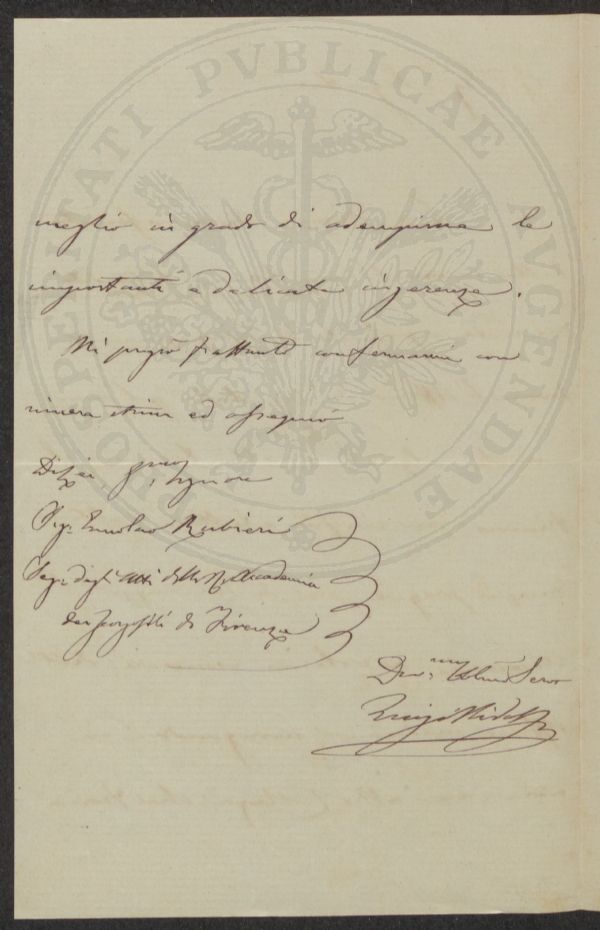 PROSPERITATI PVBLICAE AVGENDAE
meglio in grado di adempirne le
importanti e delicate ingerenze.
Mi pregio frattanto confermarmi con
sincera stima ed ossequio
Di Lei Signore
Sigr. Ermolao Rubieri
Segr. degli Atti della R. Accademia
dei Georgofili di Firenze
Devmo Obbmo Servo
Luigi Ridolfi